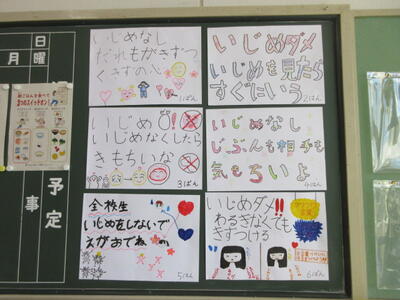 日
月
曜
朝ごはんを食べて
3つのスイッチオン!
予
定
事
いじめなし
だれもがきずつ
くきずの八
1ぱん
いじめダメ
いじめを見たら
すぐにいう
2はん
いじめ
いじめなくしたら
きもちいな
3ぱん
いじめなし
じぶんも相手も
気もちいよ
4はん
全校生
いじめをしないで
えがおでね
5はん
いじめダメ!!
わるぎなくても
きずつける
6ぱん